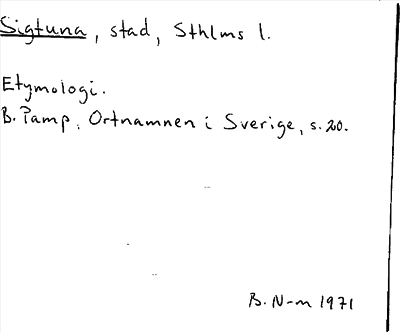 Sigtuna, stad, Sthlms l.
Etymologi.
B. Pamp, Ortnamnen i Sverige, s. 20.
B. N-m 1971